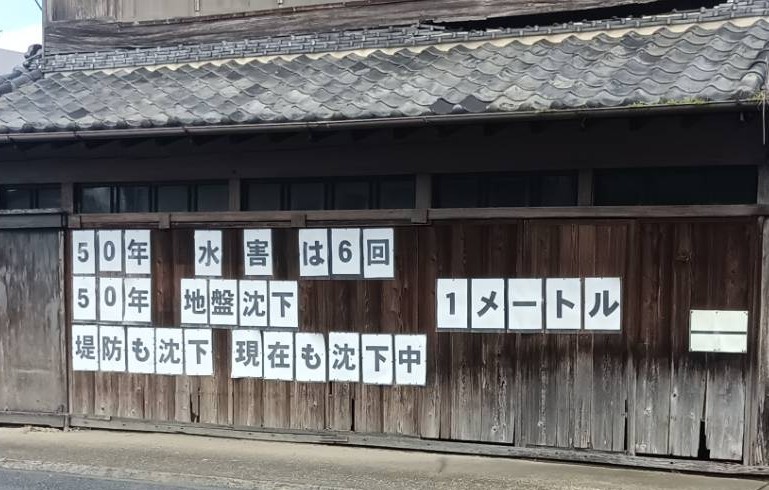 50年 水害は6回
50年 地盤沈下 1メートル
堤防も沈下 現在も沈下中